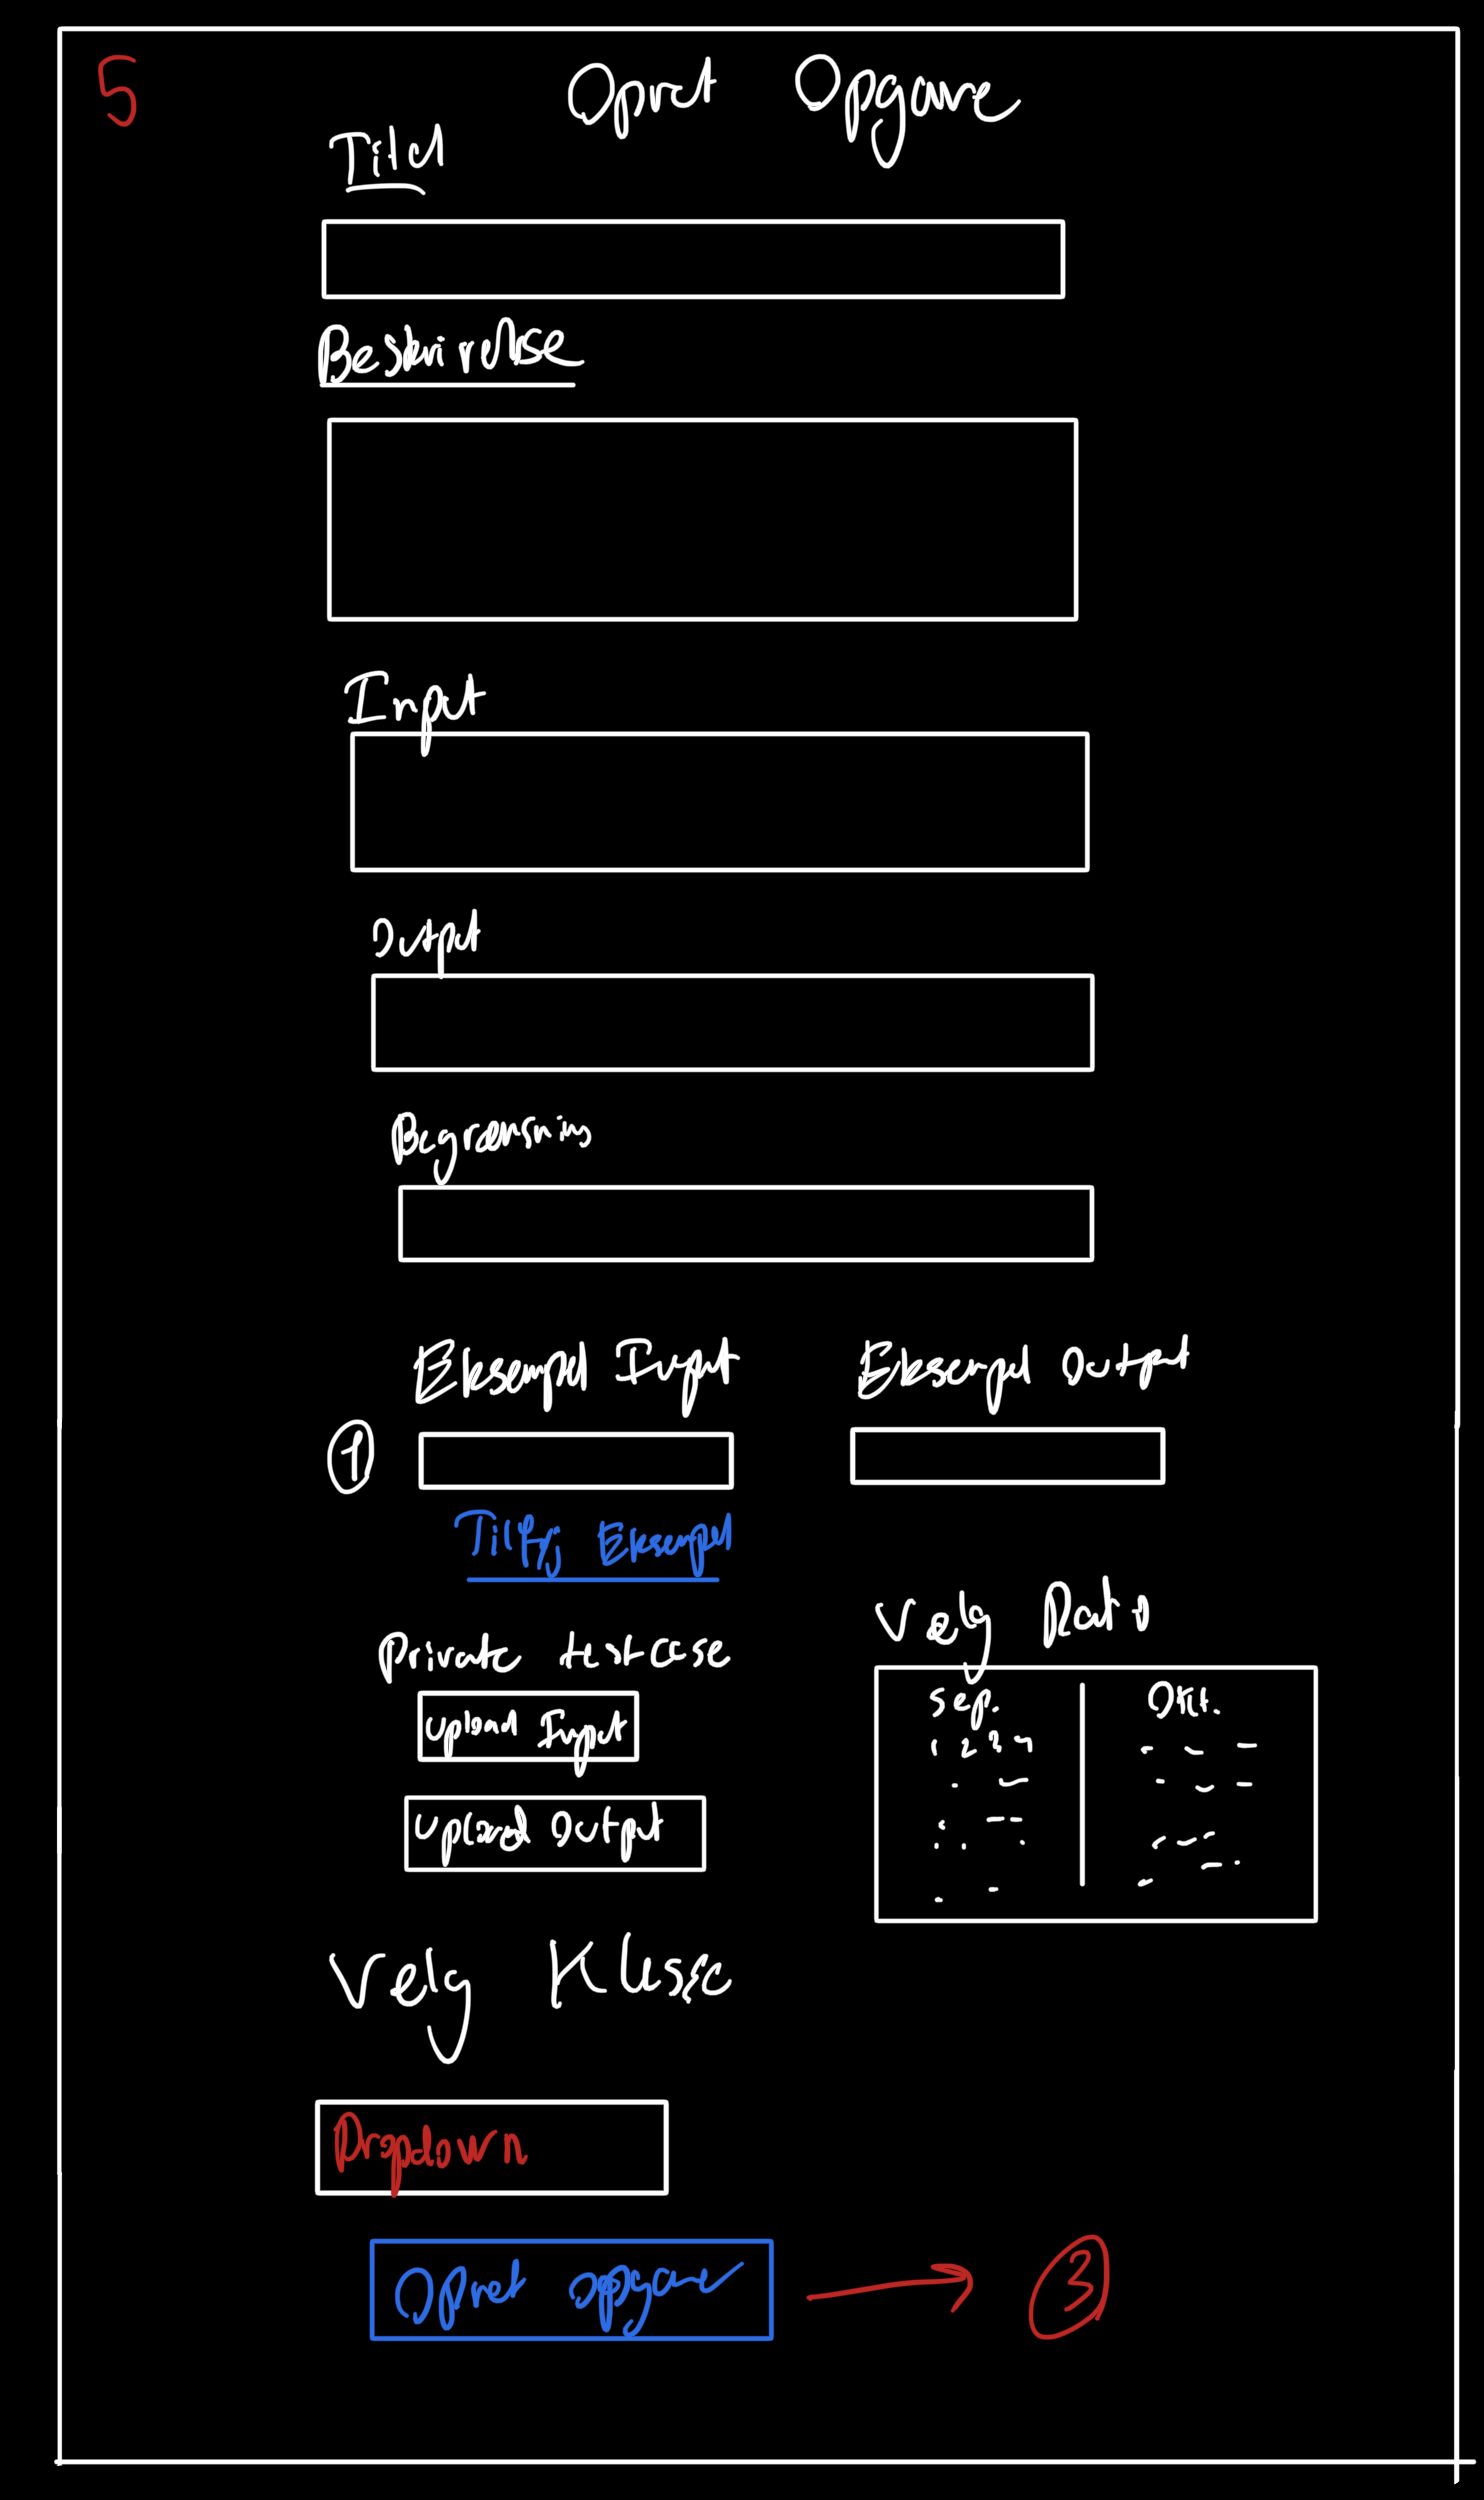 5
Opret Opgave
Titel
Beskrivelse
Input
Output
Begrænsning
Eksempel Input Eksempel Output
1
Tilføj Eksempel
Vælg
Private testcase
upload Input
upload Output
Vælg Klasse
Dropdown
Opret opgave
3